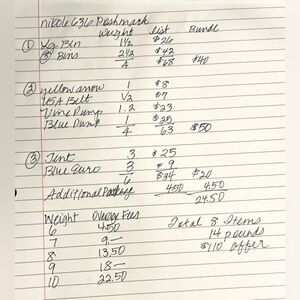 nikole636 Poshmark
Weight list Bundl
① Lg Bin 1½ $26
③ Bins 2½ $42
4 $68 $40
② yellow snow 1 $8
USA Belt ½ $7
Vine Pump 1.2 $23
Blue Pump 1 $25
4 63 $50
③ Tent 3 $25
Blue Euro 3 $9
6 $34 $20
Additional Postage 450 4.50
24.50
Weight Overage Fees
6 4.50
7 9.—
8 13.50
9 18—
10 22.50
Total 8 Items
14 pounds
$110 offer